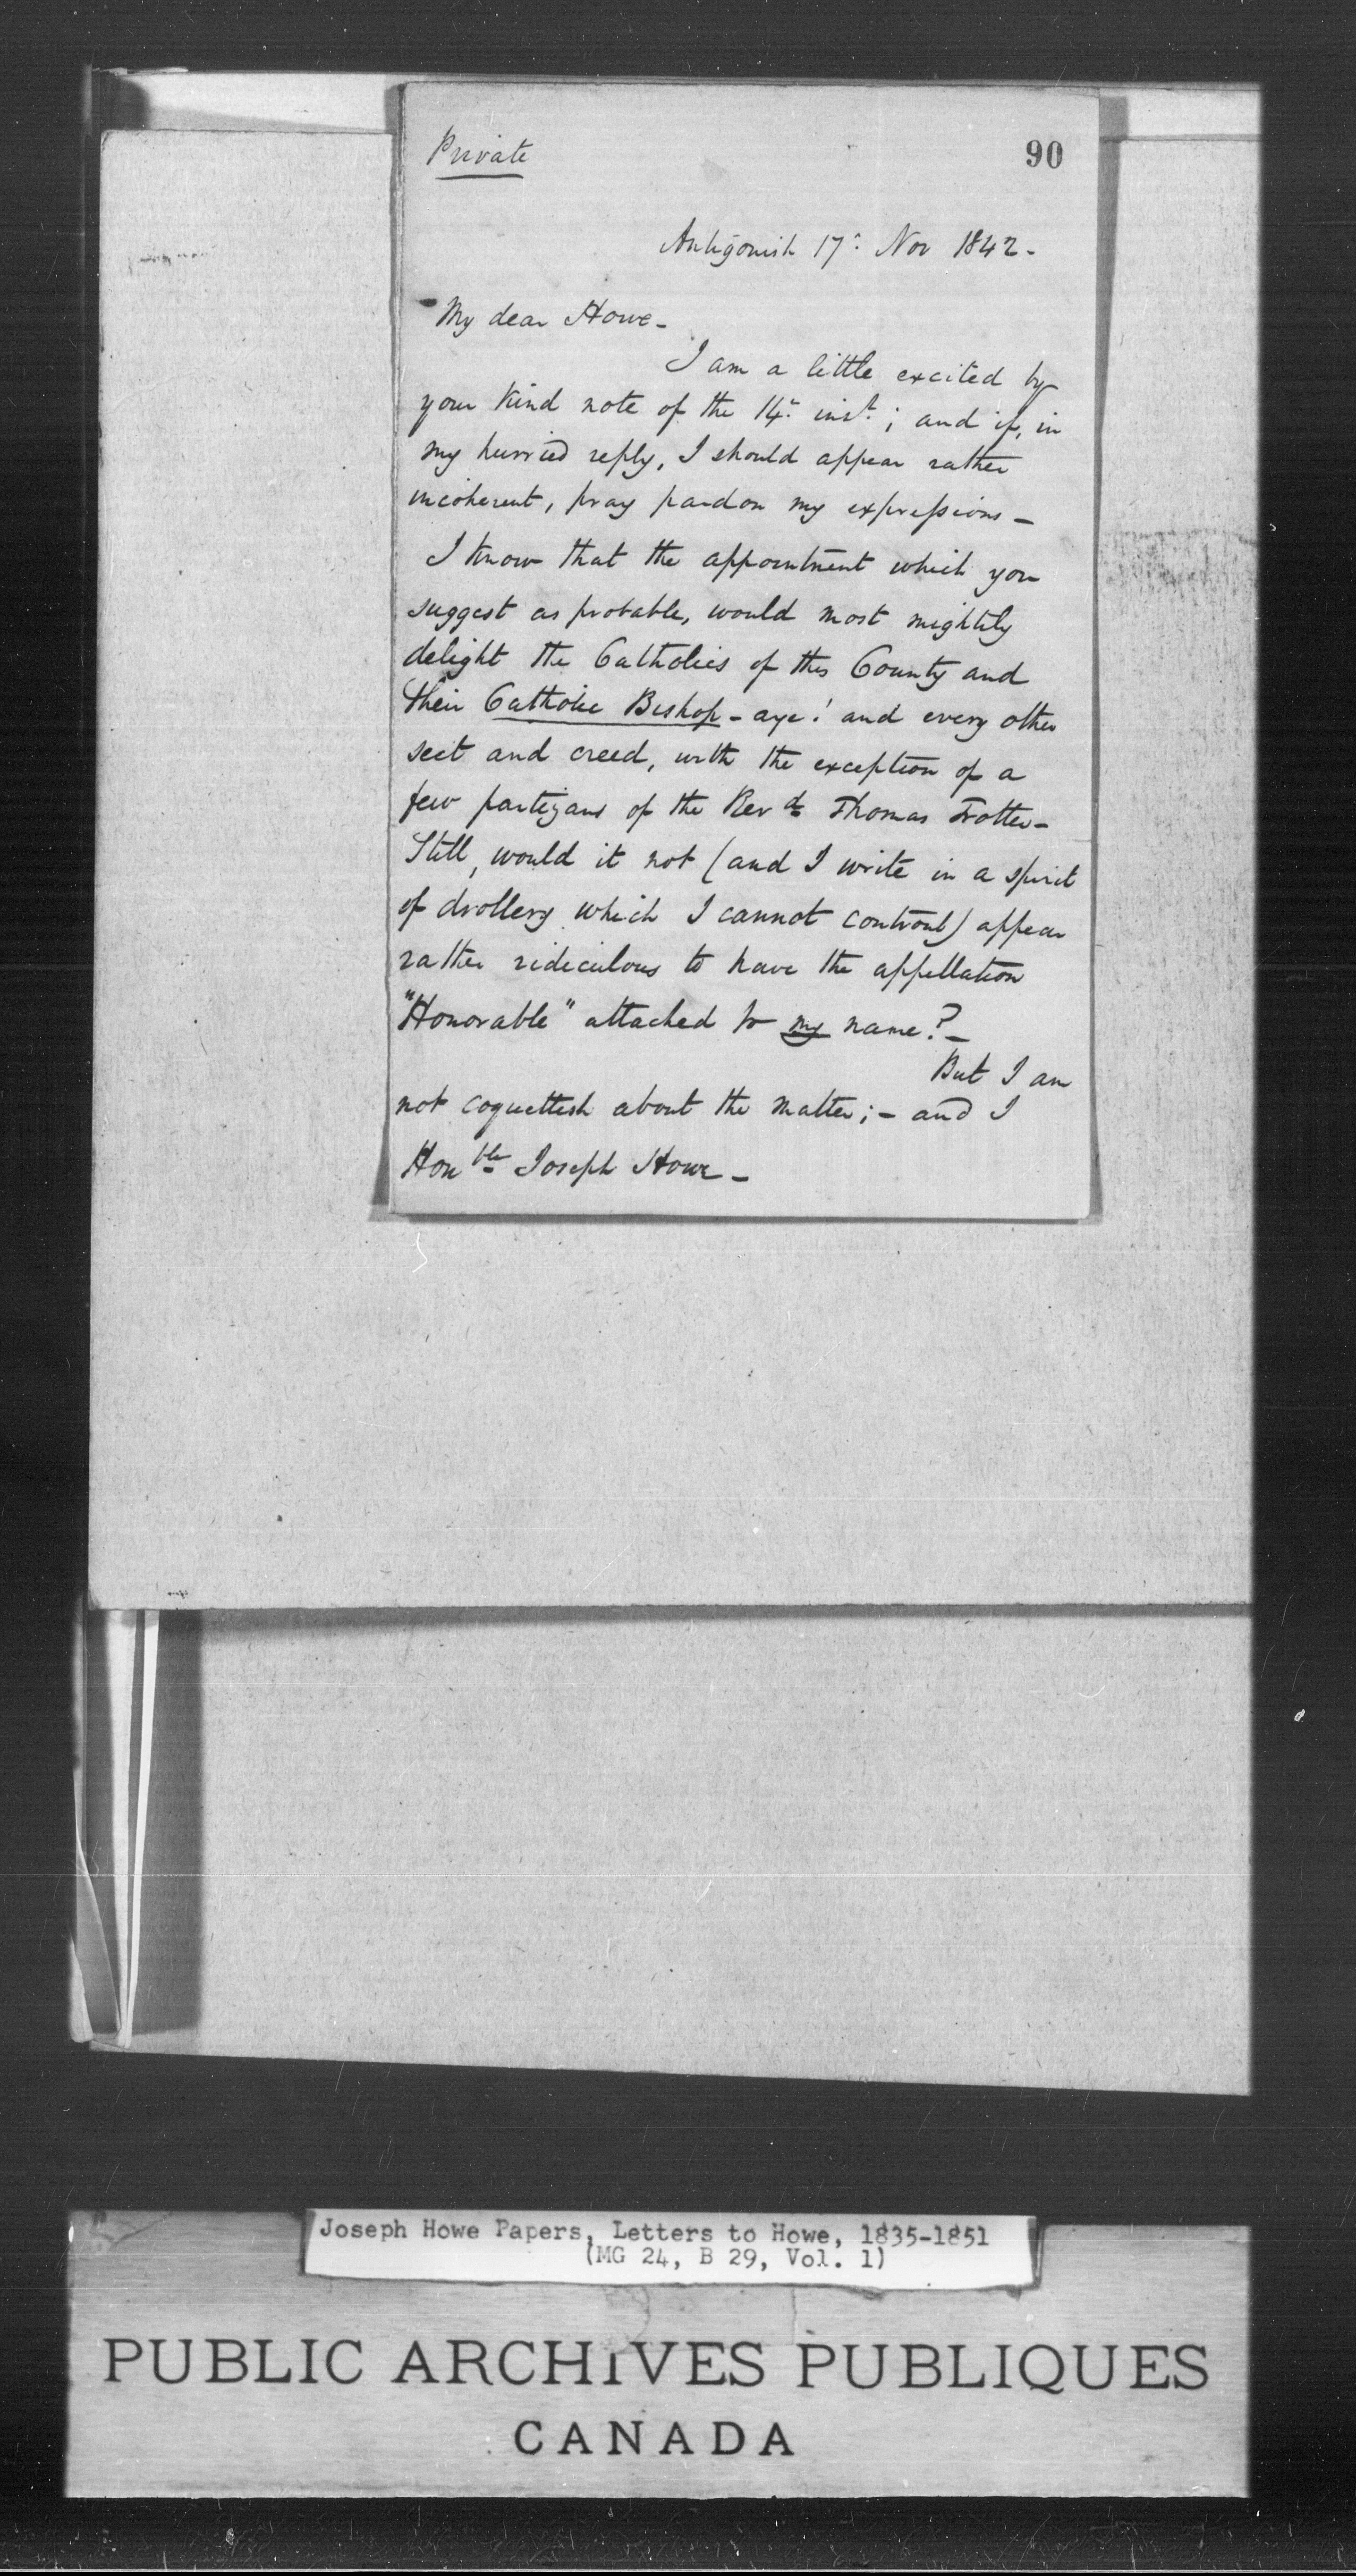 Private
90
Antigonish 17th Nov 1842-
My dear Howe-
I am a little excited by
your kind note of the 14th inst; and if, in
my hurried reply, I should appear rather
incoherent, pray pardon my expressions-
I know that the appointment which you
suggest as probable, would most mightily
delight the Catholics of this County and
their Catholic Bishop - aye! and every other
sect and creed, with the exception of a
few partizans of the Revd Thomas Trotter-
Still, would it not (and I write in a spirit
of drollery which I cannot controul) appear
rather ridiculous to have the appellation
"Honorable" attached to my name?-
But I am
not coquettish about the matter;- and I
Honble Joseph Howe-
Joseph Howe Papers, Letters to Howe, 1835-1851
(MG 24, B 29, Vol. 1)
PUBLIC ARCHIVES PUBLIQUES
CANADA